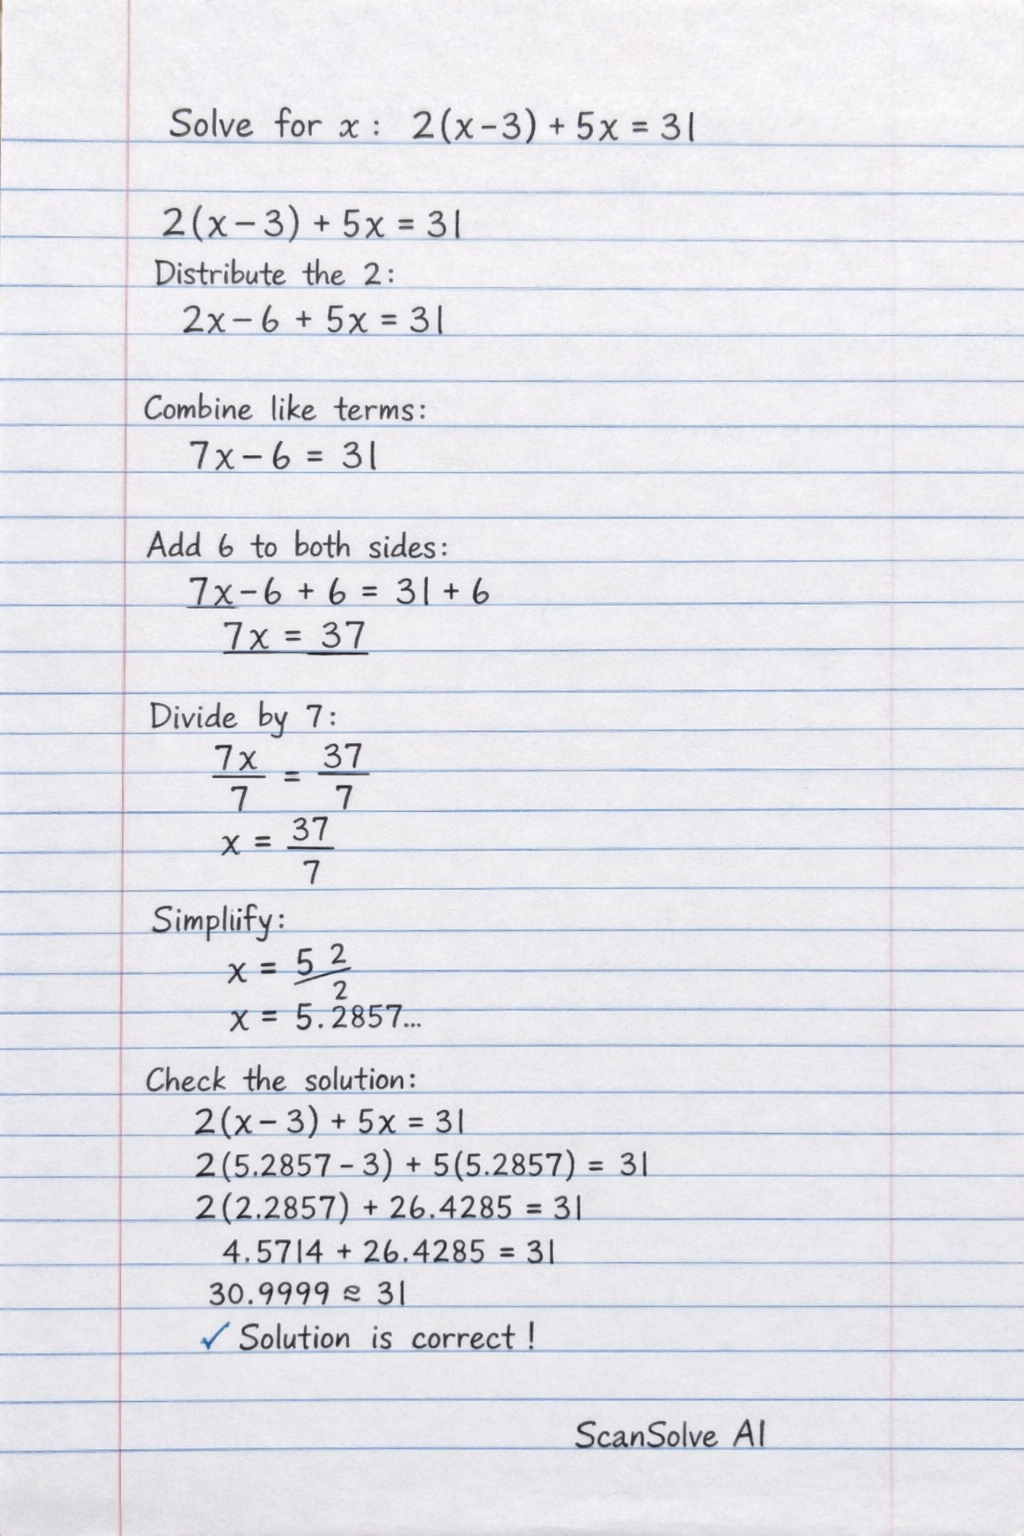 Solve for x: 2(x-3) + 5x = 31
2(x-3) + 5x = 31
Distribute the 2:
2x-6 + 5x = 31
Combine like terms:
7x-6 = 31
Add 6 to both sides:
7x-6 + 6 = 31 + 6
7x = 37
Divide by 7:
7x/7 = 37/7
x = 37/7
Simpliify:
x = 5 2/2
x = 5.2857...
Check the solution:
2(x-3) + 5x = 31
2(5.2857-3) + 5(5.2857) = 31
2(2.2857) + 26.4285 = 31
4.5714 + 26.4285 = 31
30.9999 ≈ 31
✓ Solution is correct!
ScanSolve AI